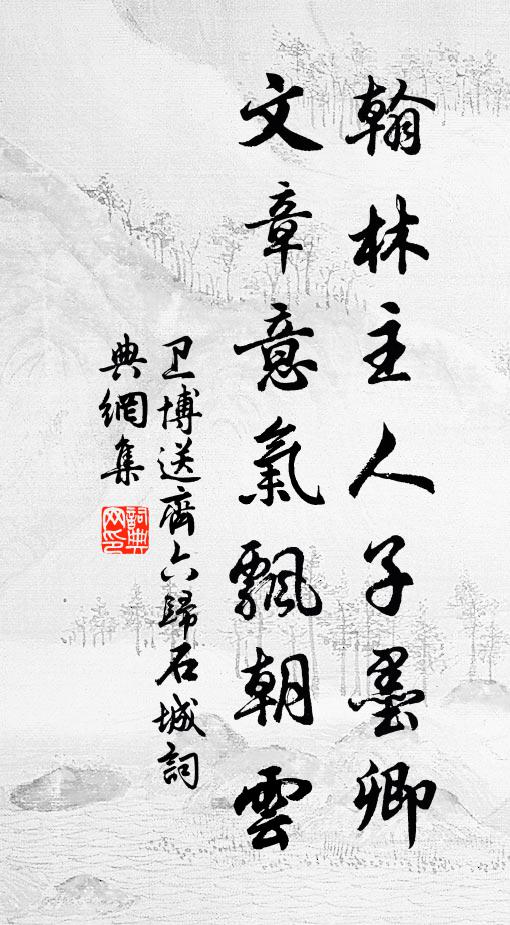 翰林主人子墨卿
文章意氣飄朝雲
卫博送齊六歸石城詞
典網集
詞典
网印